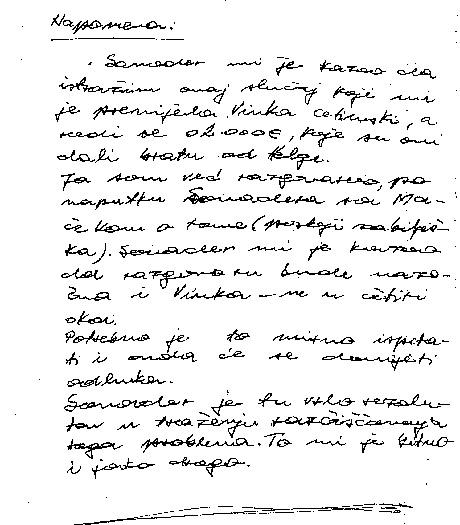 Napomena:
. Sanader mi je kazao da
istražim onaj slučaj koji mi
je prenijela Vinka Cetinski, a
radi se o 2.000€, koje su oni
dali bratu od
Ja sam već razgovarao, po
naputku Sanadera sa Ma-
čekom o tome (postoji zabilješ-
ka). Sanader mi je kazao
da razgovoru bude nazo-
čna i Vinka – ne u četiri
oka.
Potrebno je to mirno ispita-
ti i onda će se donijeti
odluka.
Sanader je tu vrlo rezolu-
tan u traženju raščišćavanja
toga problema. To mi je bitno
i jako drago.